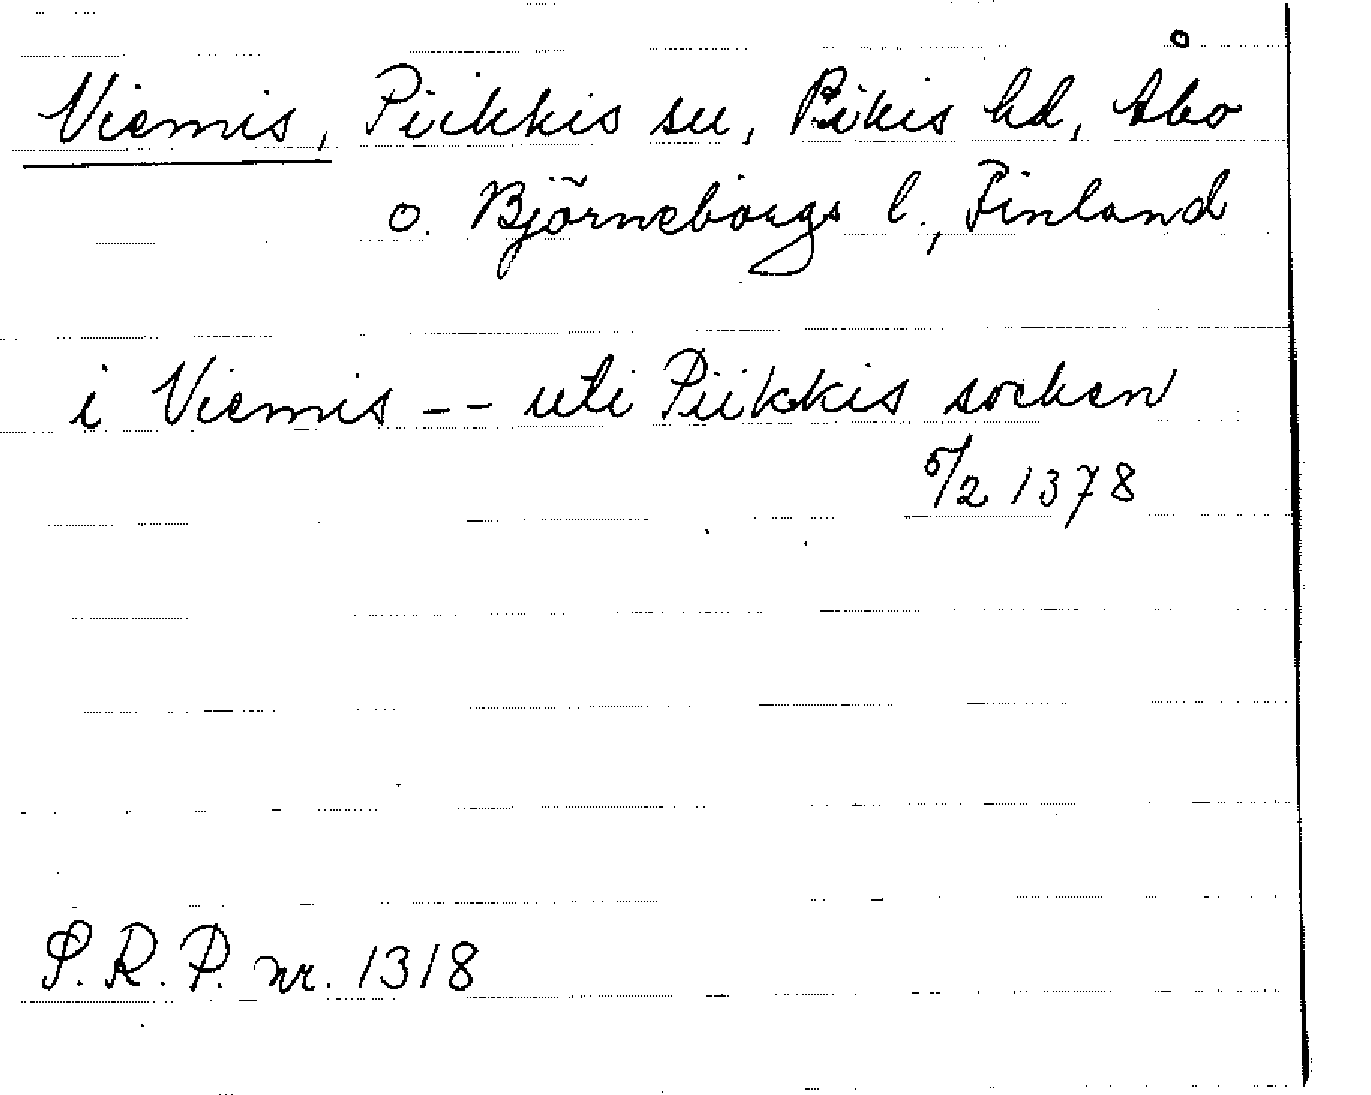 Viemis, Piikkis sn, Pikis hd, Åbo
o. Björneborgs l., Finland
i Viemis -- uti Piikkis socken
5/2 1378
S.R.P. nr. 1318